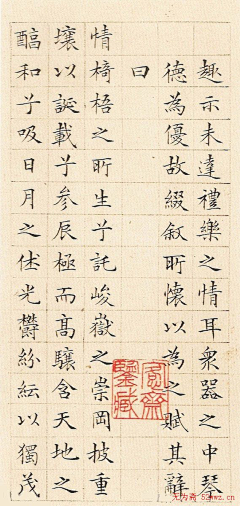 趣亦未達禮樂之情耳衆器之中琴
德為優故綴敘所懷以為之賦其辭
曰
情椅梧之所生兮託峻嶽之崇岡披重
壤以誕載兮參辰極而高驤含天地之
醕和兮吸日月之休光鬱紛紜以獨茂